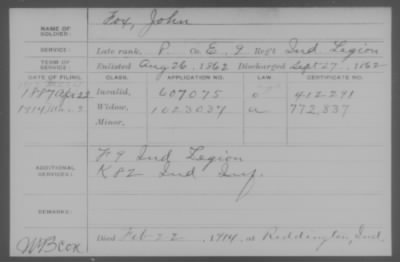 NAME OF SOLDIER: Fox, John
SERVICE: Late rank, P Co. E, 9 Reg't Ind Legion
TERM OF SERVICE: Enlisted Aug 26, 1862 Discharged Sept 27, 1862
DATE OF FILING. CLASS. APPLICATION NO. LAW. CERTIFICATE NO.
1887 Apr 22 Invalid, 607075 412298
1914 Mar. 2 Widow, 1023037 a 772,837
Minor,
ADDITIONAL SERVICES: F 9 Ind Legion
K 82 Ind Inf.
REMARKS:
Died Feb 22, 1914, at Reddington, Ind.
WB Cox